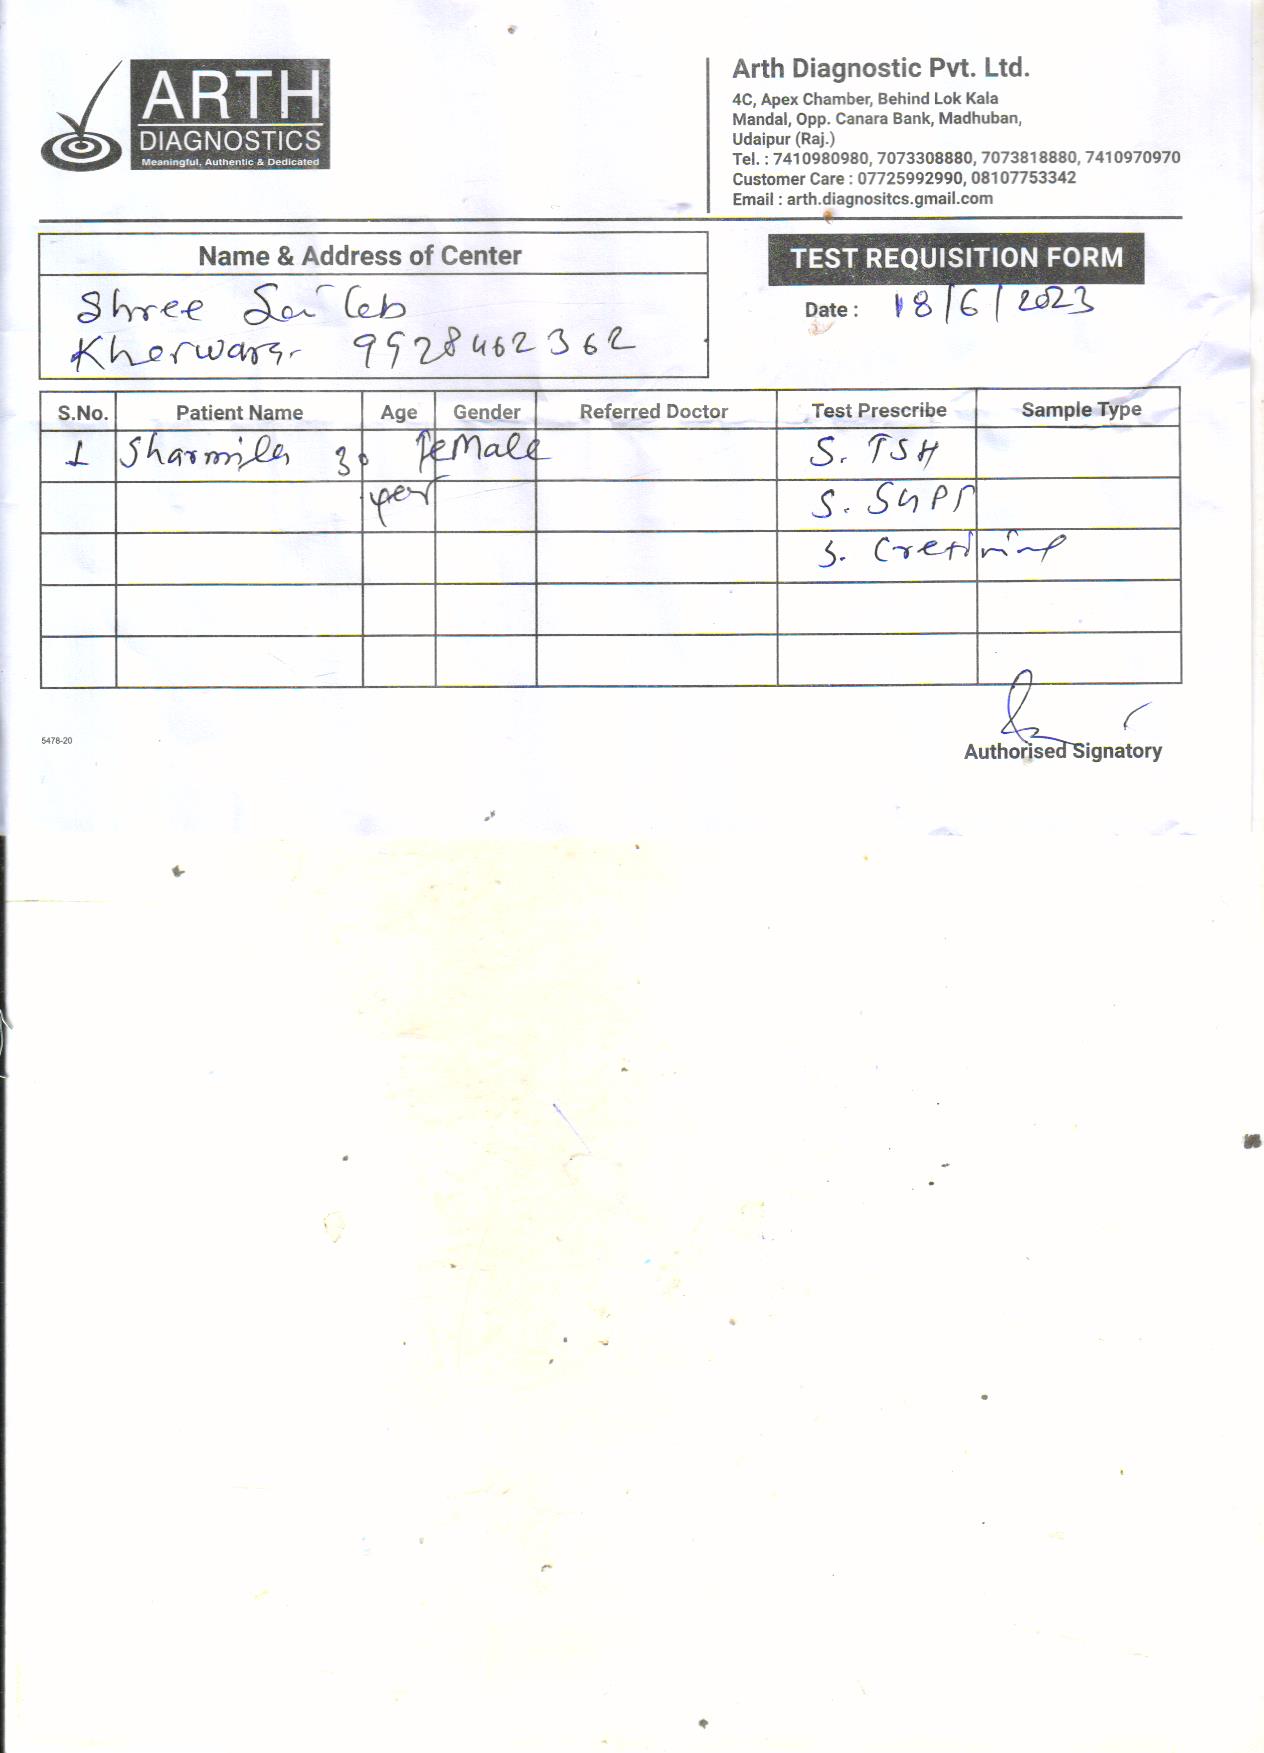 ARTH
DIAGNOSTICS
Meaningful, Authentic & Dedicated
Arth Diagnostic Pvt. Ltd.
4C, Apex Chamber, Behind Lok Kala
Mandal, Opp. Canara Bank, Madhuban,
Udaipur (Raj.)
Tel. : 7410980980, 7073308880, 7073818880, 7410970970
Customer Care : 07725992990, 08107753342
Email : arth.diagnositcs.gmail.com
Name & Address of Center
Shree Sai Lab
Kherwara 9928462362
TEST REQUISITION FORM
Date : 18/6/2023
S.No. Patient Name Age Gender Referred Doctor Test Prescribe Sample Type
1 Sharmila 30 female S. TSH
year S. SGPT
S. Cretinine
Authorised Signatory
5478-20